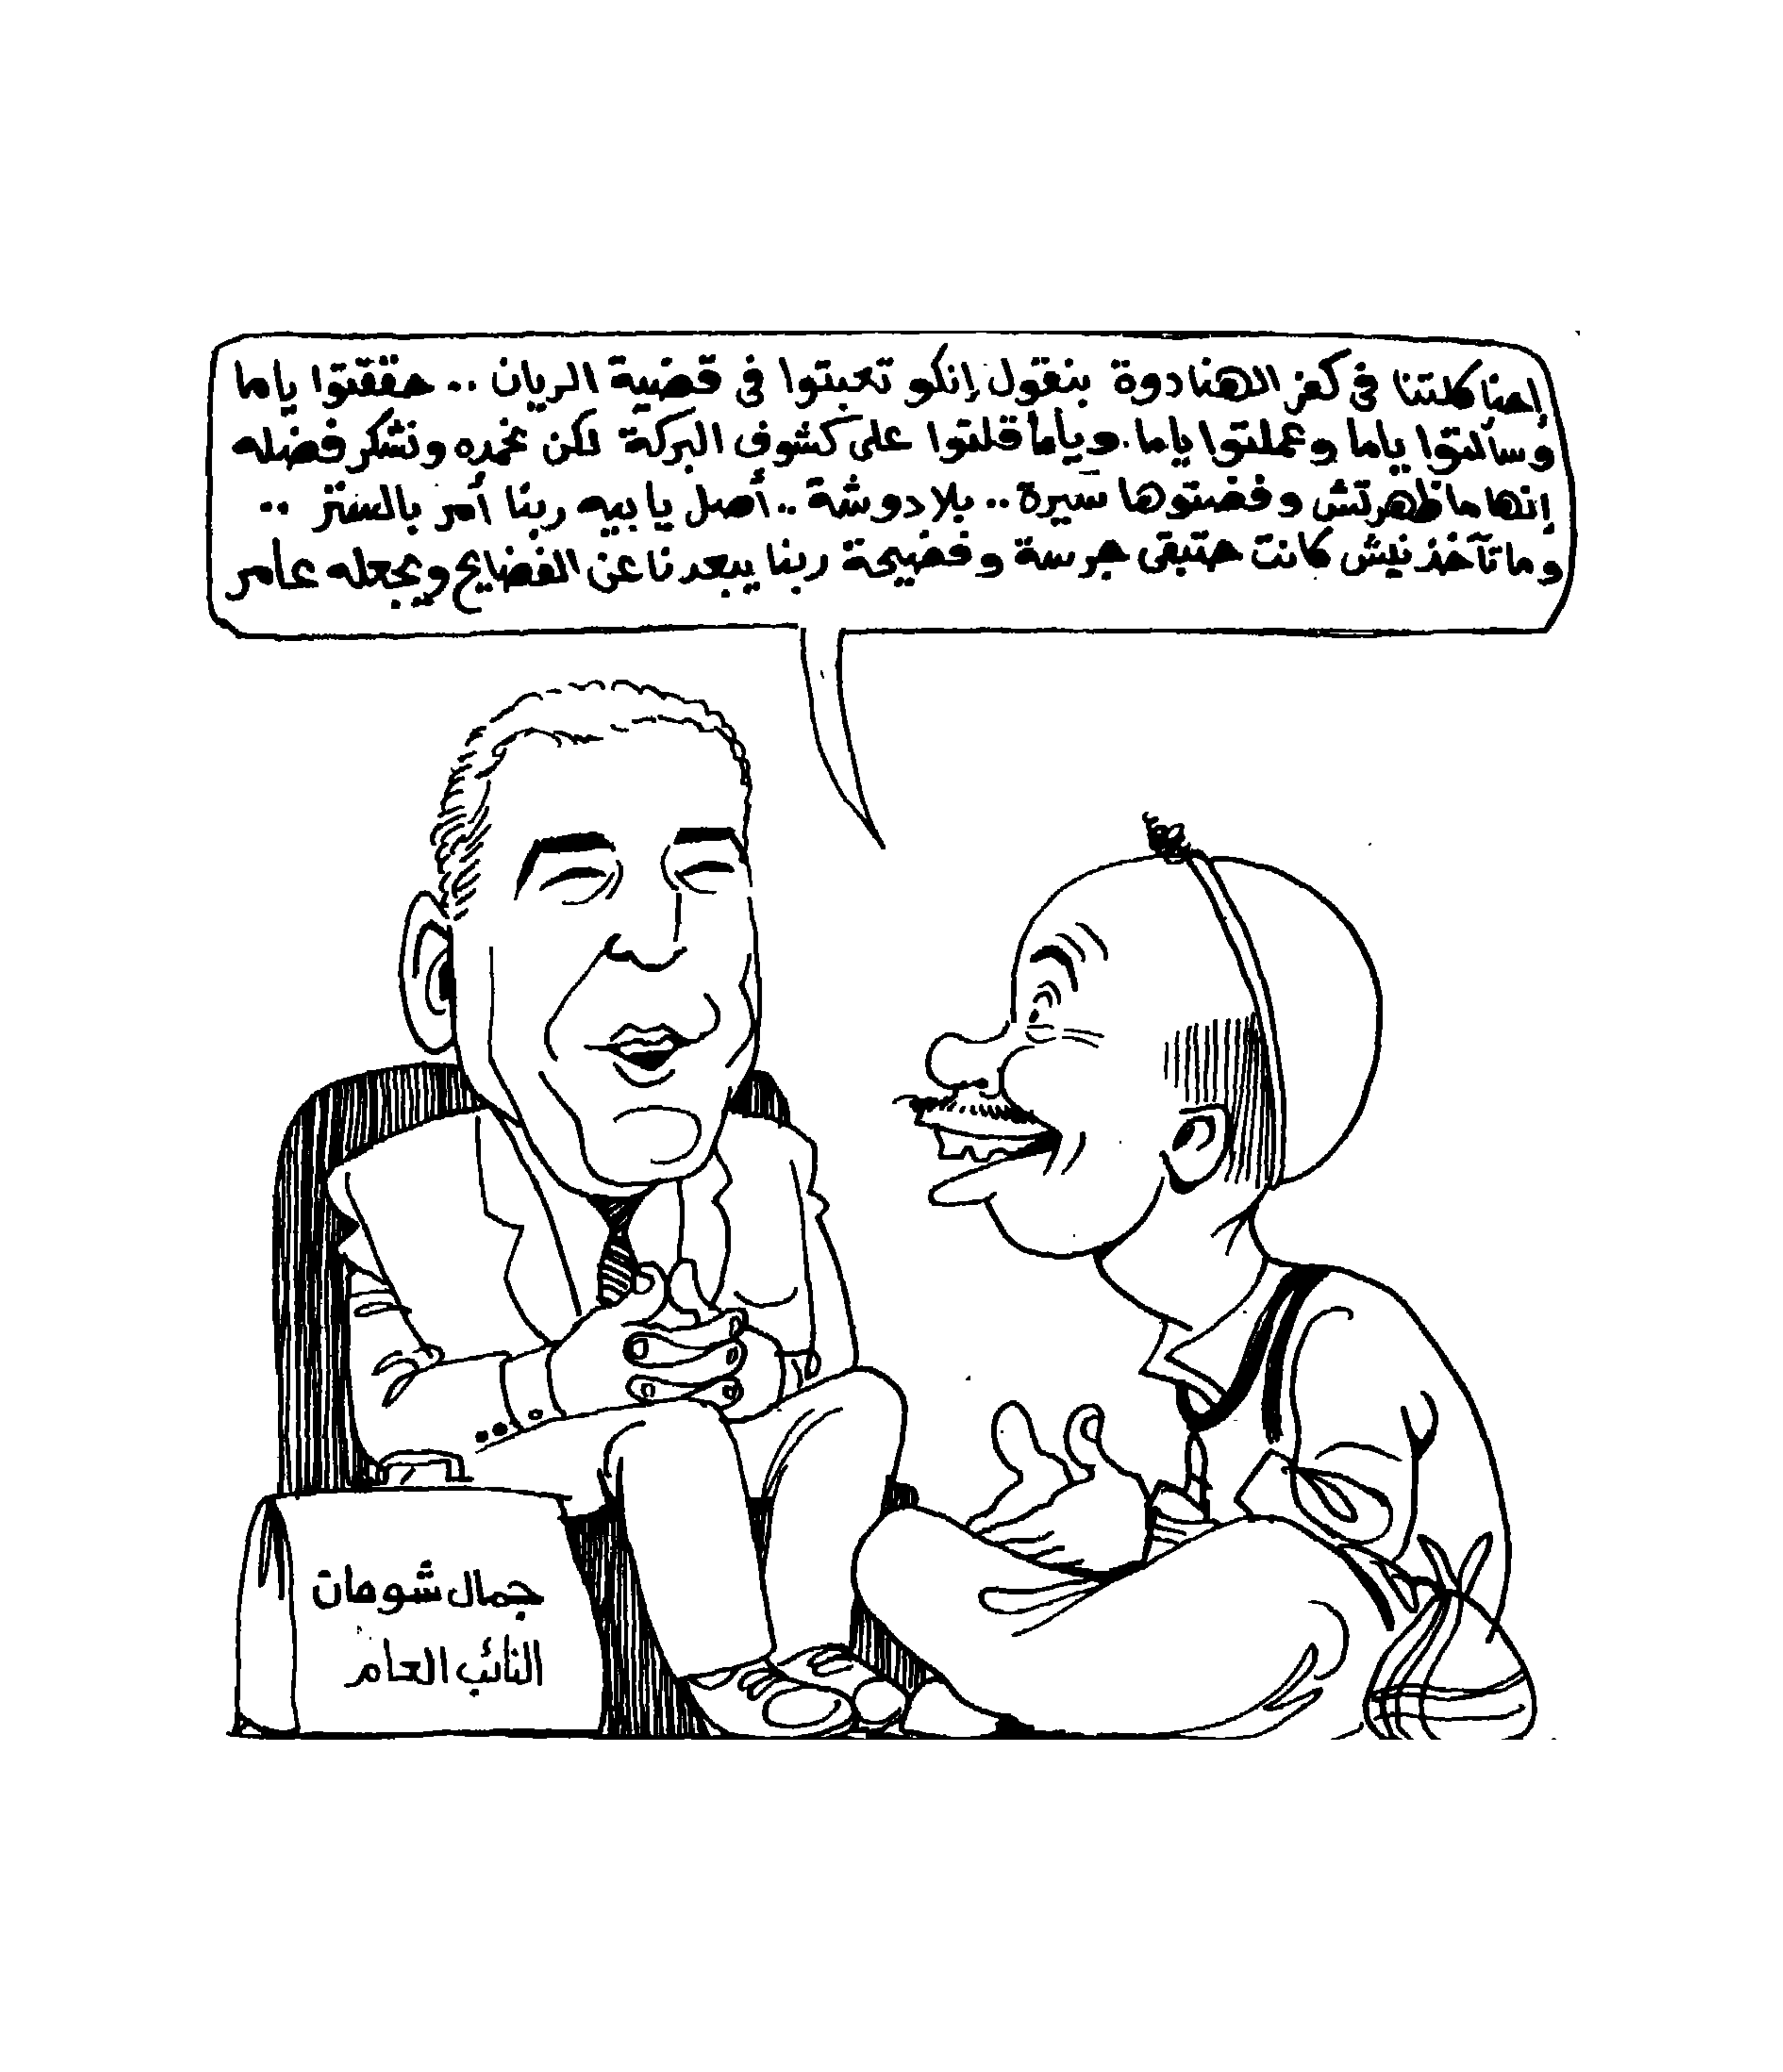 إحنا كلتنا في كفر الهنادوة بنقول إنكو تعبتوا في قضية الريان .. حققتوا ياما
وسألتوا ياما وعملتوا ياما. وياما قلتوا على كشوف البركة لكن نحمده ونشكر فضله
إنها ما ظهرتش وفضتوها سيرة .. بلا دوشة .. أصل يا بيه ربنا أمر بالستر ..
وما تآخذنيش كانت حتبقى جرسة وفضيحة ربنا يبعدنا عن الفضايح ويجعله عامر
جمال شومان
النائب العام